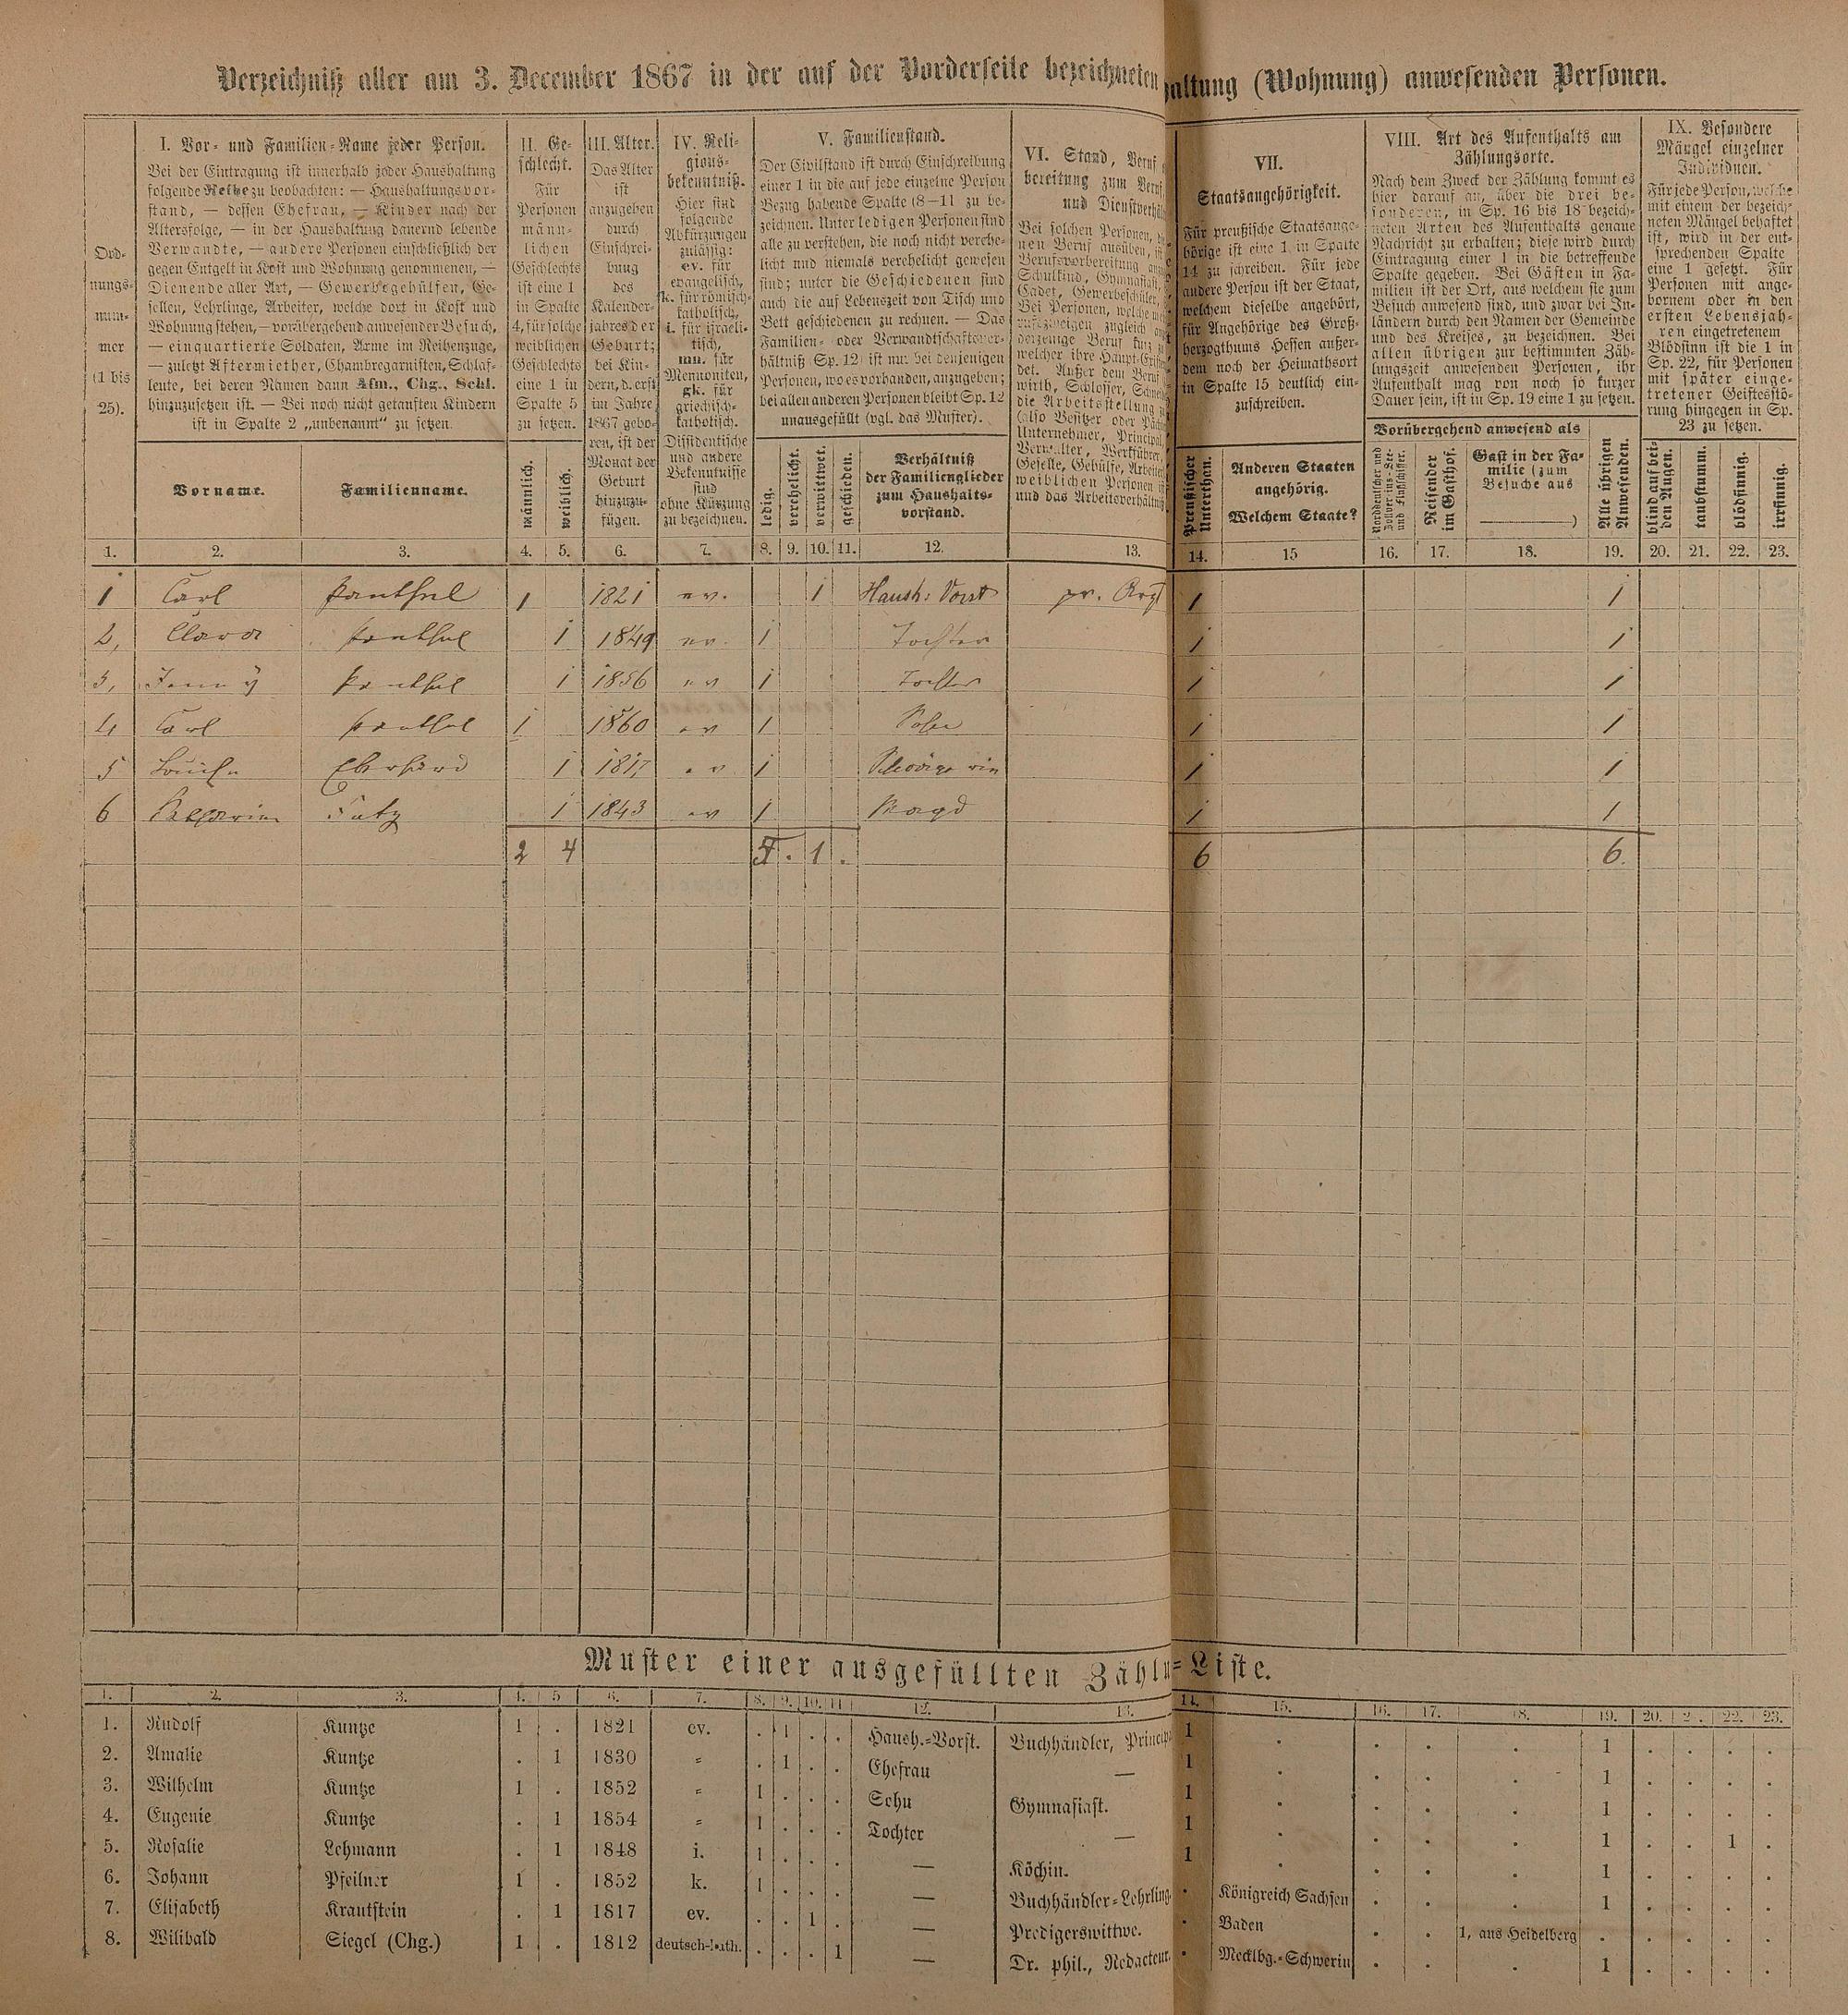 Verzeichniß aller am 3. December 1867 in der auf der Vorderseite bezeichneten
haltung (Wohnung) anwesenden Personen.
Ord-
nungs-
num-
mer
(1 bis
25).
I. Vor- und Familien-Name jeder Person.
Bei der Eintragung ist innerhalb jeder Haushaltung
folgende Reihe zu beobachten: — Haushaltungsvor-
stand, — dessen Ehefrau, — Kinder nach der
Altersfolge, — in der Haushaltung dauernd lebende
Verwandte, — andere Personen einschließlich der
gegen Entgelt in Kost und Wohnung genommenen, —
Dienende aller Art, — Gewerbegehülfen, Ge-
sellen, Lehrlinge, Arbeiter, welche dort in Kost und
Wohnung stehen, — vorübergehend anwesender Besuch,
— einquartierte Soldaten, Arme im Reihenzuge,
— zuletzt Aftermiether, Chambregarnisten, Schlaf-
leute, bei deren Namen dann Afm., Chg., Schl.
hinzuzusetzen ist. — Bei noch nicht getauften Kindern
ist in Spalte 2 „unbenannt“ zu setzen.
Vorname.
Familienname.
II. Ge-
schlecht.
Für
Personen
männ-
lichen
Geschlechts
ist eine 1
in Spalte
4, für solche
weiblichen
Geschlechts
eine 1 in
Spalte 5
zu setzen.
männlich.
weiblich.
III. Alter.
Das Alter
ist
anzugeben
durch
Einschrei-
bung
des
Kalender-
jahres der
Geburt;
bei Kin-
dern, d. erst
im Jahre
1867 gebo-
ren, ist der
Monat der
Geburt
hinzuzu-
fügen.
IV. Reli-
gions-
bekenntniß.
Hier sind
folgende
Abkürzungen
zulässig:
ev. für
evangelisch,
k. für römisch-
katholisch,
i. für israeli-
tisch,
mn. für
Mennoniten,
gk. für
griechisch-
katholisch.
Dissidentische
und andere
Bekenntnisse
sind
ohne Kürzung
zu bezeichnen.
V. Familienstand.
Der Civilstand ist durch Einschreibung
einer 1 in die auf jede einzelne Person
Bezug habende Spalte (8—11) zu be-
zeichnen. Unter ledigen Personen sind
alle zu verstehen, die noch nicht verehe-
licht und niemals verehelicht gewesen
sind; unter die Geschiedenen sind
auch die auf Lebenszeit von Tisch und
Bett geschiedenen zu rechnen. — Das
Familien- oder Verwandtschaftsver-
hältniß Sp. 12 ist nur bei denjenigen
Personen, wo es vorhanden, anzugeben;
bei allen anderen Personen bleibt Sp. 12
unausgefüllt (vgl. das Muster).
ledig.
verehelicht.
verwittwet.
geschieden.
Verhältniß
der Familienglieder
zum Haushalts-
vorstand.
VI. Stand, Beruf
bereitung zum Beruf
und Dienstverhäl
Bei solchen Personen,
nen Beruf ausüben, ist
Berufsvorbereitung
Schulkind, Gymnasiast,
Cadet, Gewerbeschüler,
Bei Personen, welche
rufszweigen zugleich
derjenige Beruf
welcher ihre Haupt-
det. Außer dem Beruf
wirth, Schlosser,
die Arbeitsstellung
(also Besitzer oder
Unternehmer, Principal,
Verwalter, Werkführer,
Geselle, Gehülfe, Arbeiter
weiblichen Personen
und das Arbeitsverhältniß
VII.
Staatsangehörigkeit.
Für preußische Staatsange-
hörige ist eine 1 in Spalte
14 zu schreiben. Für jede
andere Person ist der Staat,
welchem dieselbe angehört,
für Angehörige des Groß-
herzogthums Hessen außer-
dem noch der Heimathsort
in Spalte 15 deutlich ein-
zuschreiben.
Preußischer
Unterthan.
Anderen Staaten
angehörig.
Welchem Staate?
VIII. Art des Aufenthalts am
Zählungsorte.
Nach dem Zweck der Zählung kommt es
hier darauf an, über die drei be-
sonderen, in Sp. 16 bis 18 bezeich-
neten Arten des Aufenthalts genaue
Nachricht zu erhalten; diese wird durch
Eintragung einer 1 in die betreffende
Spalte gegeben. Bei Gästen in Fa-
milien ist der Ort, aus welchem sie zum
Besuch anwesend sind, und zwar bei In-
ländern durch den Namen der Gemeinde
und des Kreises, zu bezeichnen. Bei
allen übrigen zur bestimmten Zäh-
lungszeit anwesenden Personen, ihr
Aufenthalt mag von noch so kurzer
Dauer sein, ist in Sp. 19 eine 1 zu setzen.
Vorübergehend anwesend als
Norddeutscher und
Zollvereins-See-
und Flußschiffer.
Reisender
im Gasthof.
Gast in der Fa-
milie (zum
Besuche aus
)
Alle übrigen
Anwesenden.
IX. Besondere
Mängel einzelner
Individuen.
Für jede Person, welche
mit einem der bezeich-
neten Mängel behaftet
ist, wird in der ent-
sprechenden Spalte
eine 1 gesetzt. Für
Personen mit ange-
bornem oder in den
ersten Lebensjah-
ren eingetretenem
Blödsinn ist die 1 in
Sp. 22, für Personen
mit später einge-
tretener Geistesstö-
rung hingegen in Sp.
23 zu setzen.
blind auf bei-
den Augen.
taubstumm.
blödsinnig.
irrsinnig.
1. 2. 3. 4. 5. 6. 7. 8. 9. 10. 11. 12. 13. 14. 15 16. 17. 18. 19. 20. 21. 22. 23.
1 Carl Panthel 1 1821 ev. 1 Haush: Vorst pr. Arzt 1 1
2, Clara Panthel 1 1849 ev. 1 Tochter 1 1
3, Jenny Panthel 1 1856 ev 1 Tochter 1 1
4 Carl Panthel 1 1860 ev 1 Sohn 1 1
5 Louise Eberhard 1 1817 ev 1 1 1
6 1 1843 ev 1 Magd 1 1
2 4 5 . 1 . 6 6.
Muster einer ausgefüllten Zählu=Liste.
1. 2. 3. 4. 5 6. 7. 8. 9. 10. 11 12. 13. 14. 15. 16. 17. 18. 19. 20. 2. 22. 23.
1. Rudolf Kuntze 1 . 1821 ev. . 1 . . Haush.=Vorst. Buchhändler, Princip 1 . . . . 1 . . . .
2. Amalie Kuntze . 1 1830 = . 1 . . Ehefrau — 1 . . . . 1 . . . .
3. Wilhelm Kuntze 1 . 1852 = 1 . . . Sohn Gymnasiast. 1 . . . . 1 . . . .
4. Eugenie Kuntze . 1 1854 = 1 . . . Tochter — 1 . . . . 1 . . 1 .
5. Rosalie Lehmann . 1 1848 i. 1 . . . — Köchin. 1 . . . . 1 . . . .
6. Johann Pfeilner 1 . 1852 k. 1 . . . — Buchhändler=Lehrling . Königreich Sachsen . . . 1 . . . .
7. Elisabeth Krautstein . 1 1817 ev. . . 1 . — Predigerswittwe. . Baden . . 1, aus Heidelberg . . . . .
8. Wilibald Siegel (Chg.) 1 . 1812 deutsch-kath. . . . 1 — Dr. phil., Redacteur. . Mecklbg.=Schwerin . . . 1 . . . .